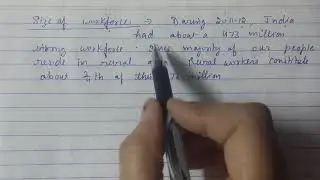 Size of workforce → Daring 2011-12, India
had about a 473 million
strong workforce. Since majority of our people
reside in rural Rural workers constitute
about of this million